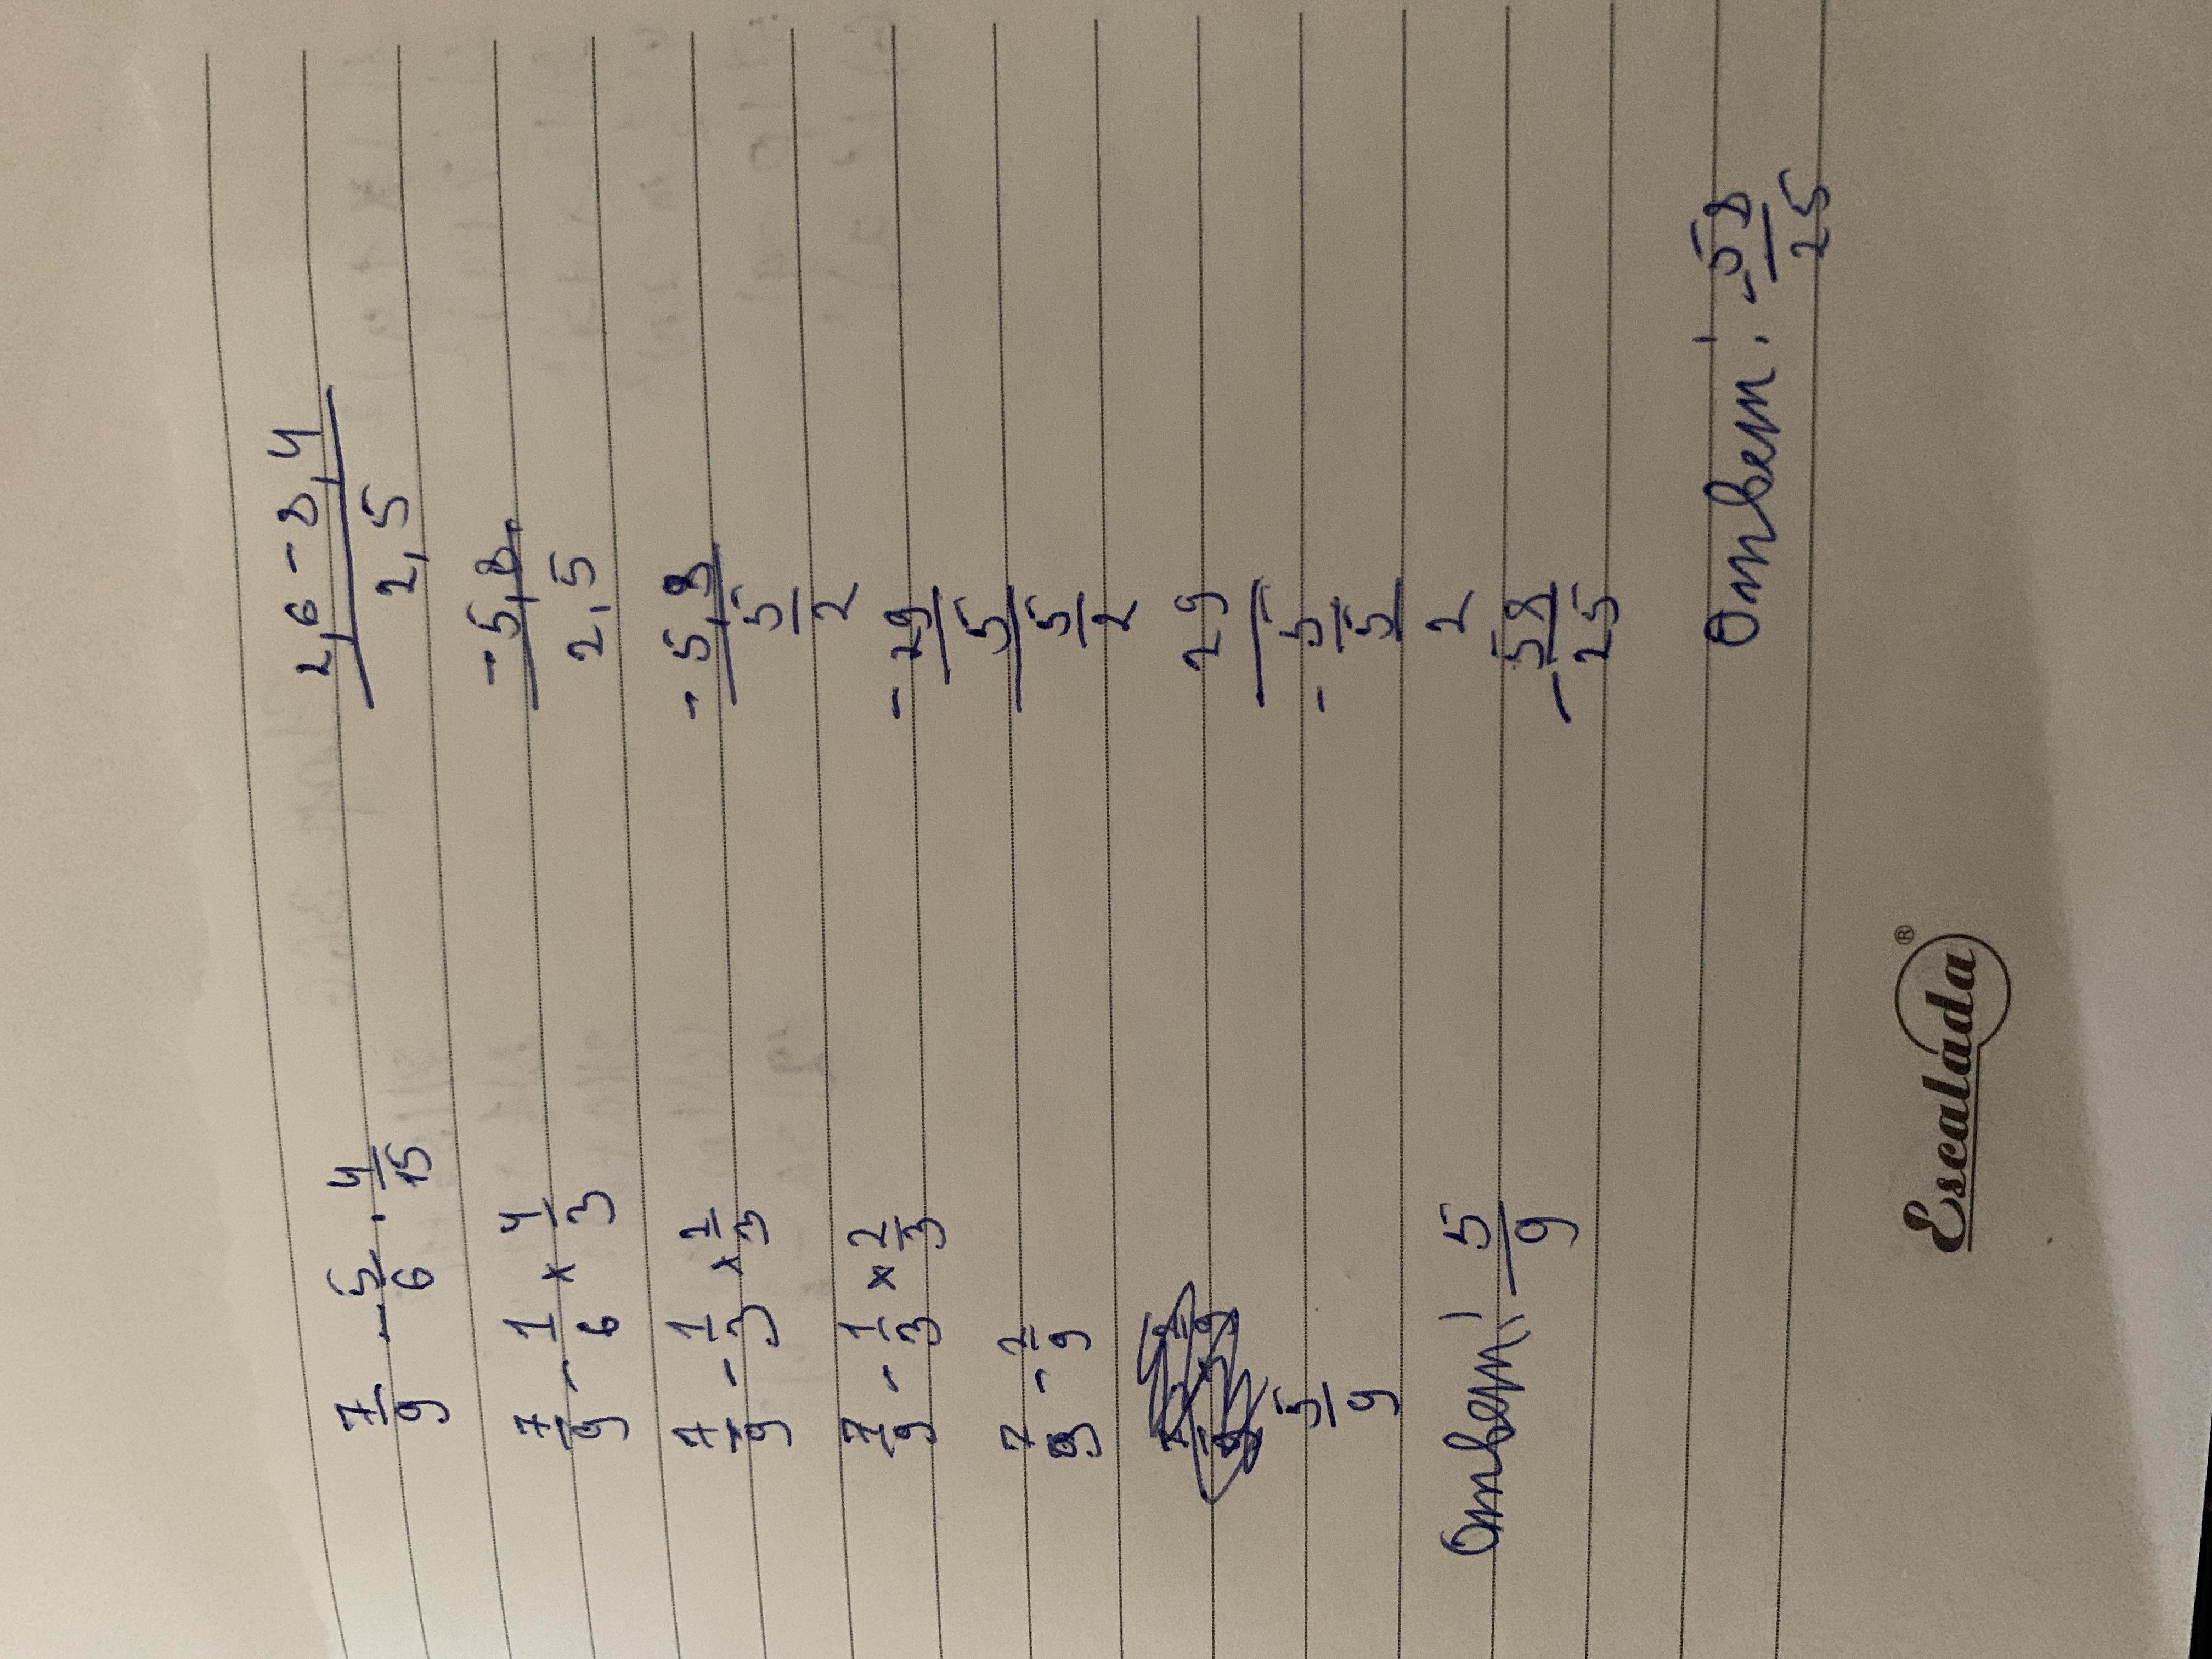 7/9 - 5/6 · 4/15
7/9 - 1/6 × 4/3
7/9 - 1/3 × 2/3
7/9 - 1/3 × 2/3
7/9 - 2/9
5/9
Ответ: 5/9
2,6 - 8,4
2,5
-5,8
2,5
-5,8
5/2
- 29/5
5/2
29
- 5
5
2
- 58/25
Ответ: -58/25
Escalada®